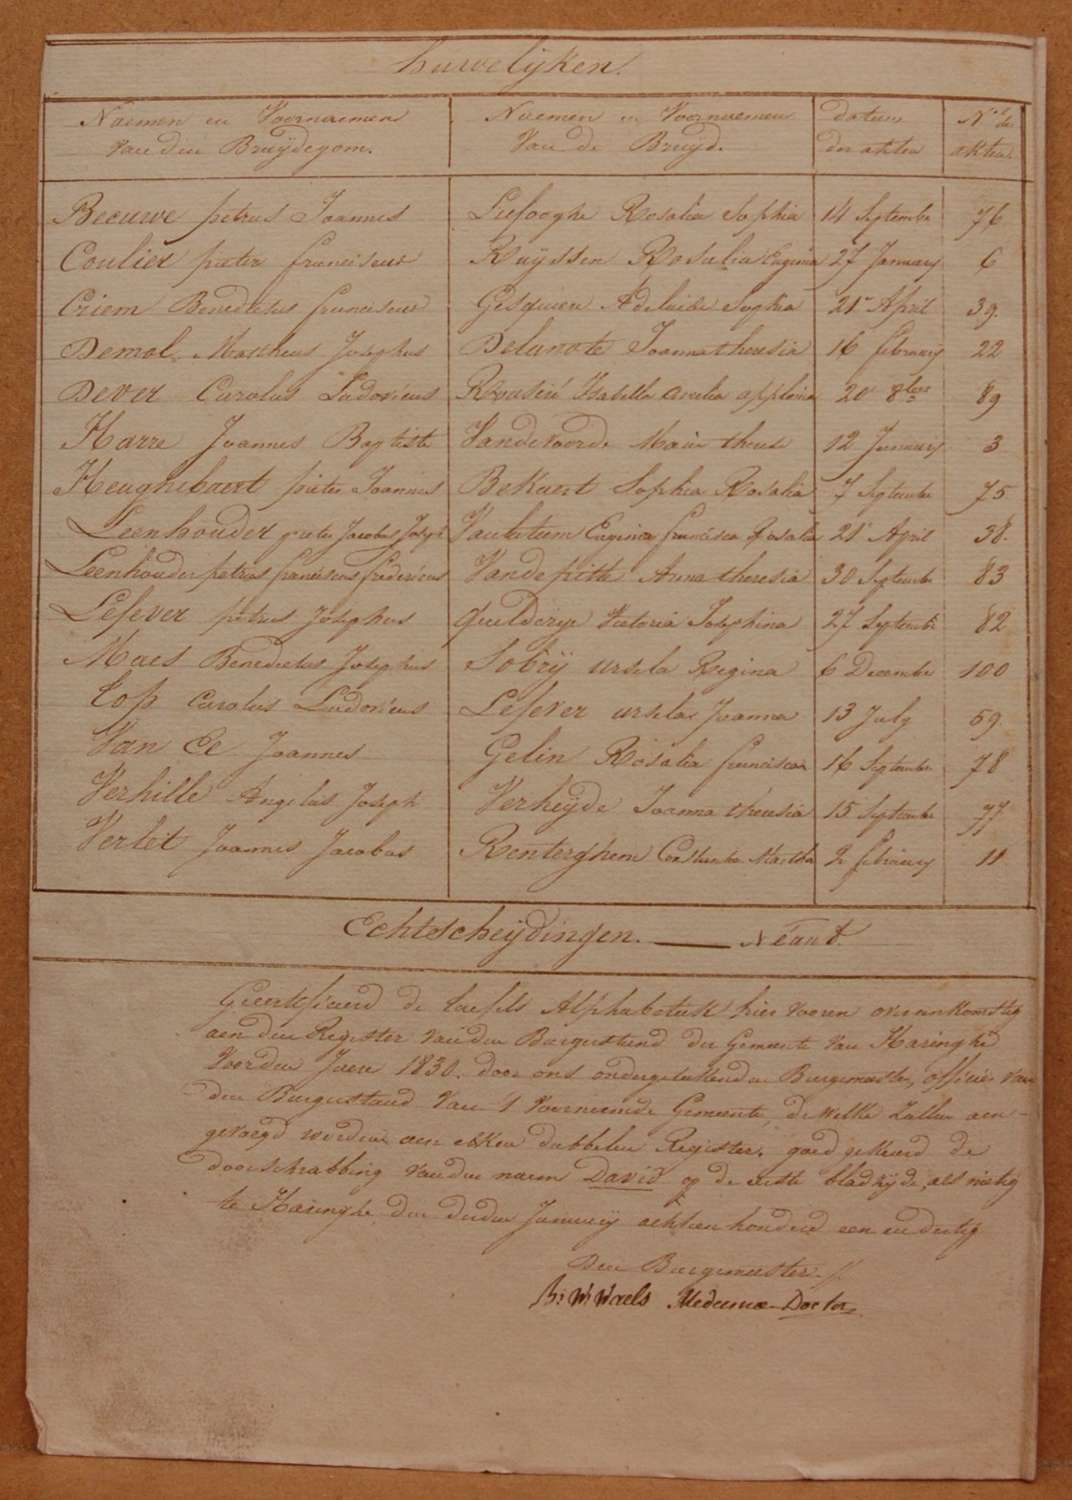 huwelijken.
Naemen en Voornaemen Naemen en Voornaemen datum N.° der
Van den Bruijdegom. Van de Bruijd. der akten akten
Beeuwe petrus Joannes Lefooghe Rosalia Sophia 14 September 76
Coulier pieter franciscus Ruyssen Rosalia Eugenia 27 January 6
Criem Benedictus franciscus Gesquiere Adelaide Sophia 21 April 39.
Demol Mattheus Josephus Delanote Joanna theresia 16 february 22
Dever Carolus Ludovicus Isabella Amelia 20 8ber 89
Harre Joannes Baptiste Vandevoorde Marie therese 12 January 3
Heughebaert pieter Joannes Bekaert Sophia Rosalia 7 September 75
Leenhouder pieter Jacobus Joseph Eugenia francisca Rosalia 21 April 38.
Leenhouder petrus franciscus fredericus Vandepitte Anna theresia 30 September 83
Lefever petrus Josephus Victoria Josephina 27 September 82
Maes Benedictus Josephus Sobrÿ ursula Regina 6 December 100
top Carolus Ludovicus Lefever ursula Joanna 13 July 59.
Van Ee Joannes Gelin Rosalia francisca 16 September 78
Verhille Angelus Joseph Verheyde Joanna theresia 15 September 77
Verlet Joannes Jacobus Renterghem Constantia Martha 2 february 11
Echtscheijdingen. Néant.
Gecertifieerd de taefels Alphabetiek hier vooren overeenkomstig
aen den Register van den Burgerstand der Gemeente van Haringhe
voor den Jaere 1830. door ons ondergeteekenden Burgemeester, officier van
den Burgerstand van 's voornoemde Gemeente, de welke zullen aen-
gevoegd worden aen elken dubbelen Register. goed gekeurd de
doorschrabbing van den naem David op de eerste bladzijde, als nietig
te Haringhe den derden January achtien honderd een en dertig
Den Burgemeester
B: W: Waels Medecinæ Doctor